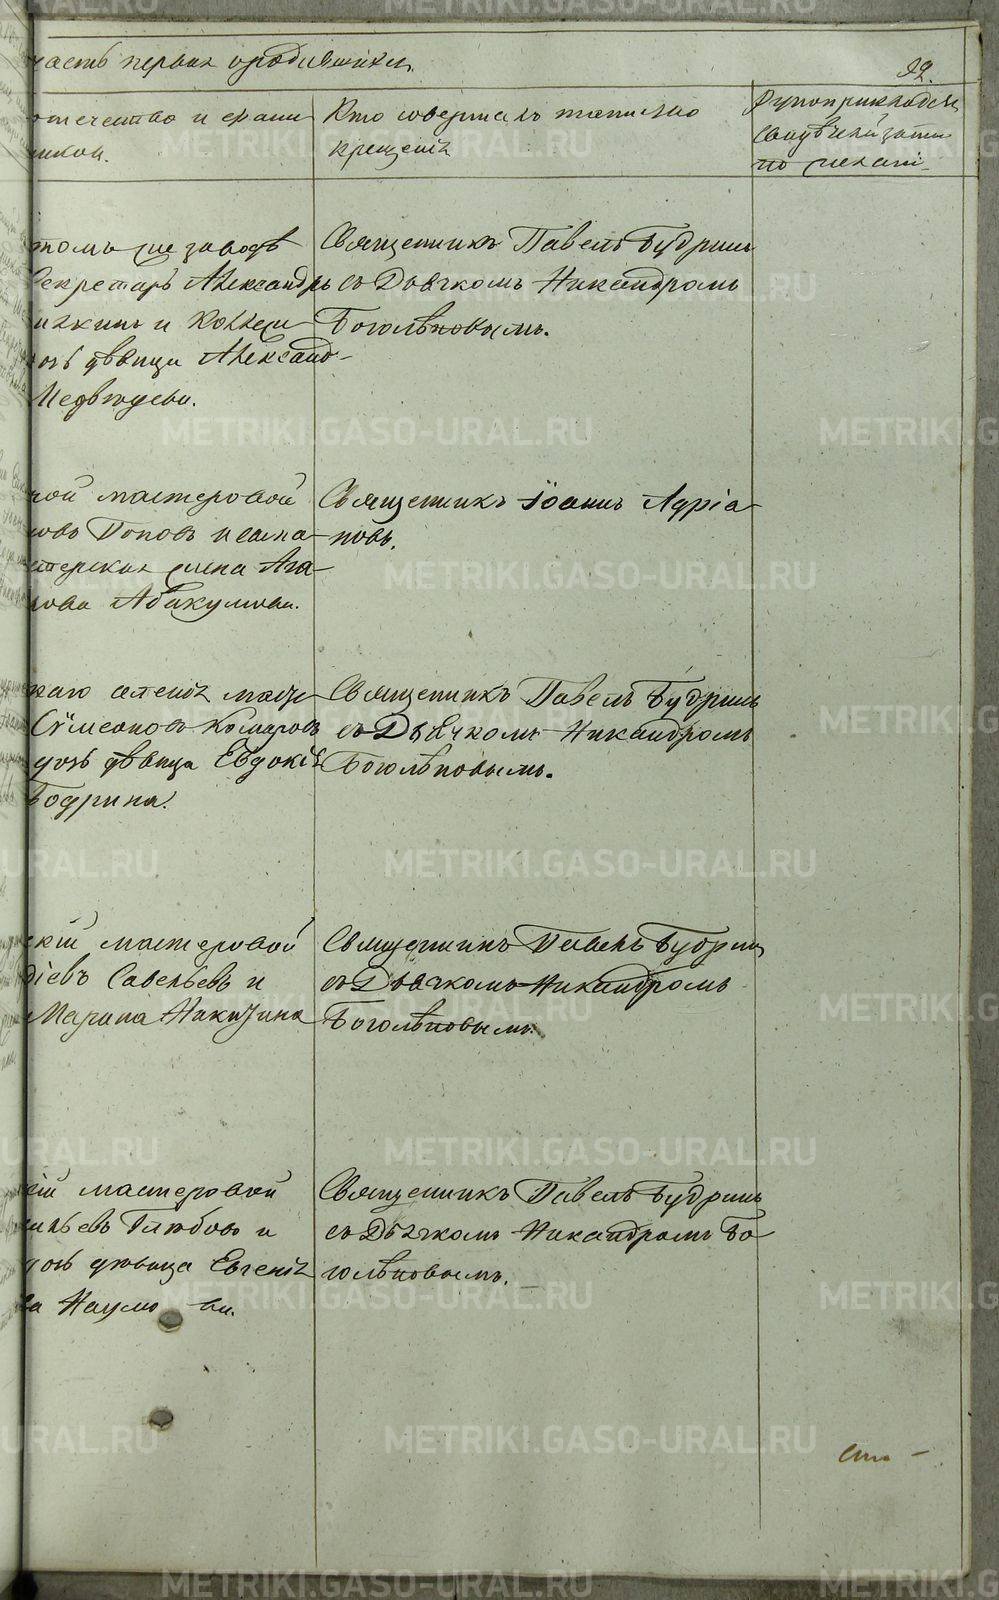 часть первая о родившихся.
92.
отчество и фами
милiи.
Кто совершалъ таинство
крещенiя
Рукоприкладст
свидѣтелей зап
по желанi
томъ же заводѣ
Секретарь Александръ
и Коллеж
дочь дѣвица Александ-
Медвѣдева.
Священникъ Павелъ Будринъ
съ Дьячкомъ Никандромъ
Боголѣповымъ.
мастеровой
Поповъ и
жена Ага
Абакумова.
Священникъ Iоаннъ Адрiа
новъ.
Сѵмеоновъ Комаровъ
дочь дѣвица Евдокiя
Бодрина.
Священникъ Павелъ Будринъ
съ Дьячкомъ Никандромъ
Боголѣповымъ.
скiй мастеровой
дiевъ Савельевъ и
Марина Никитина
Священникъ Павелъ Будринъ
съ Дьячкомъ Никандромъ
Боголѣповымъ.
кiй мастеровой
ильевъ Глѣбовъ и
дочь дѣвица Евгенiя
ва Наумова.
Священникъ Павелъ Будринъ
съ Дьячкомъ Никандромъ Бо
голѣповымъ.
сто -
METRIKI.GASO-URAL.RU